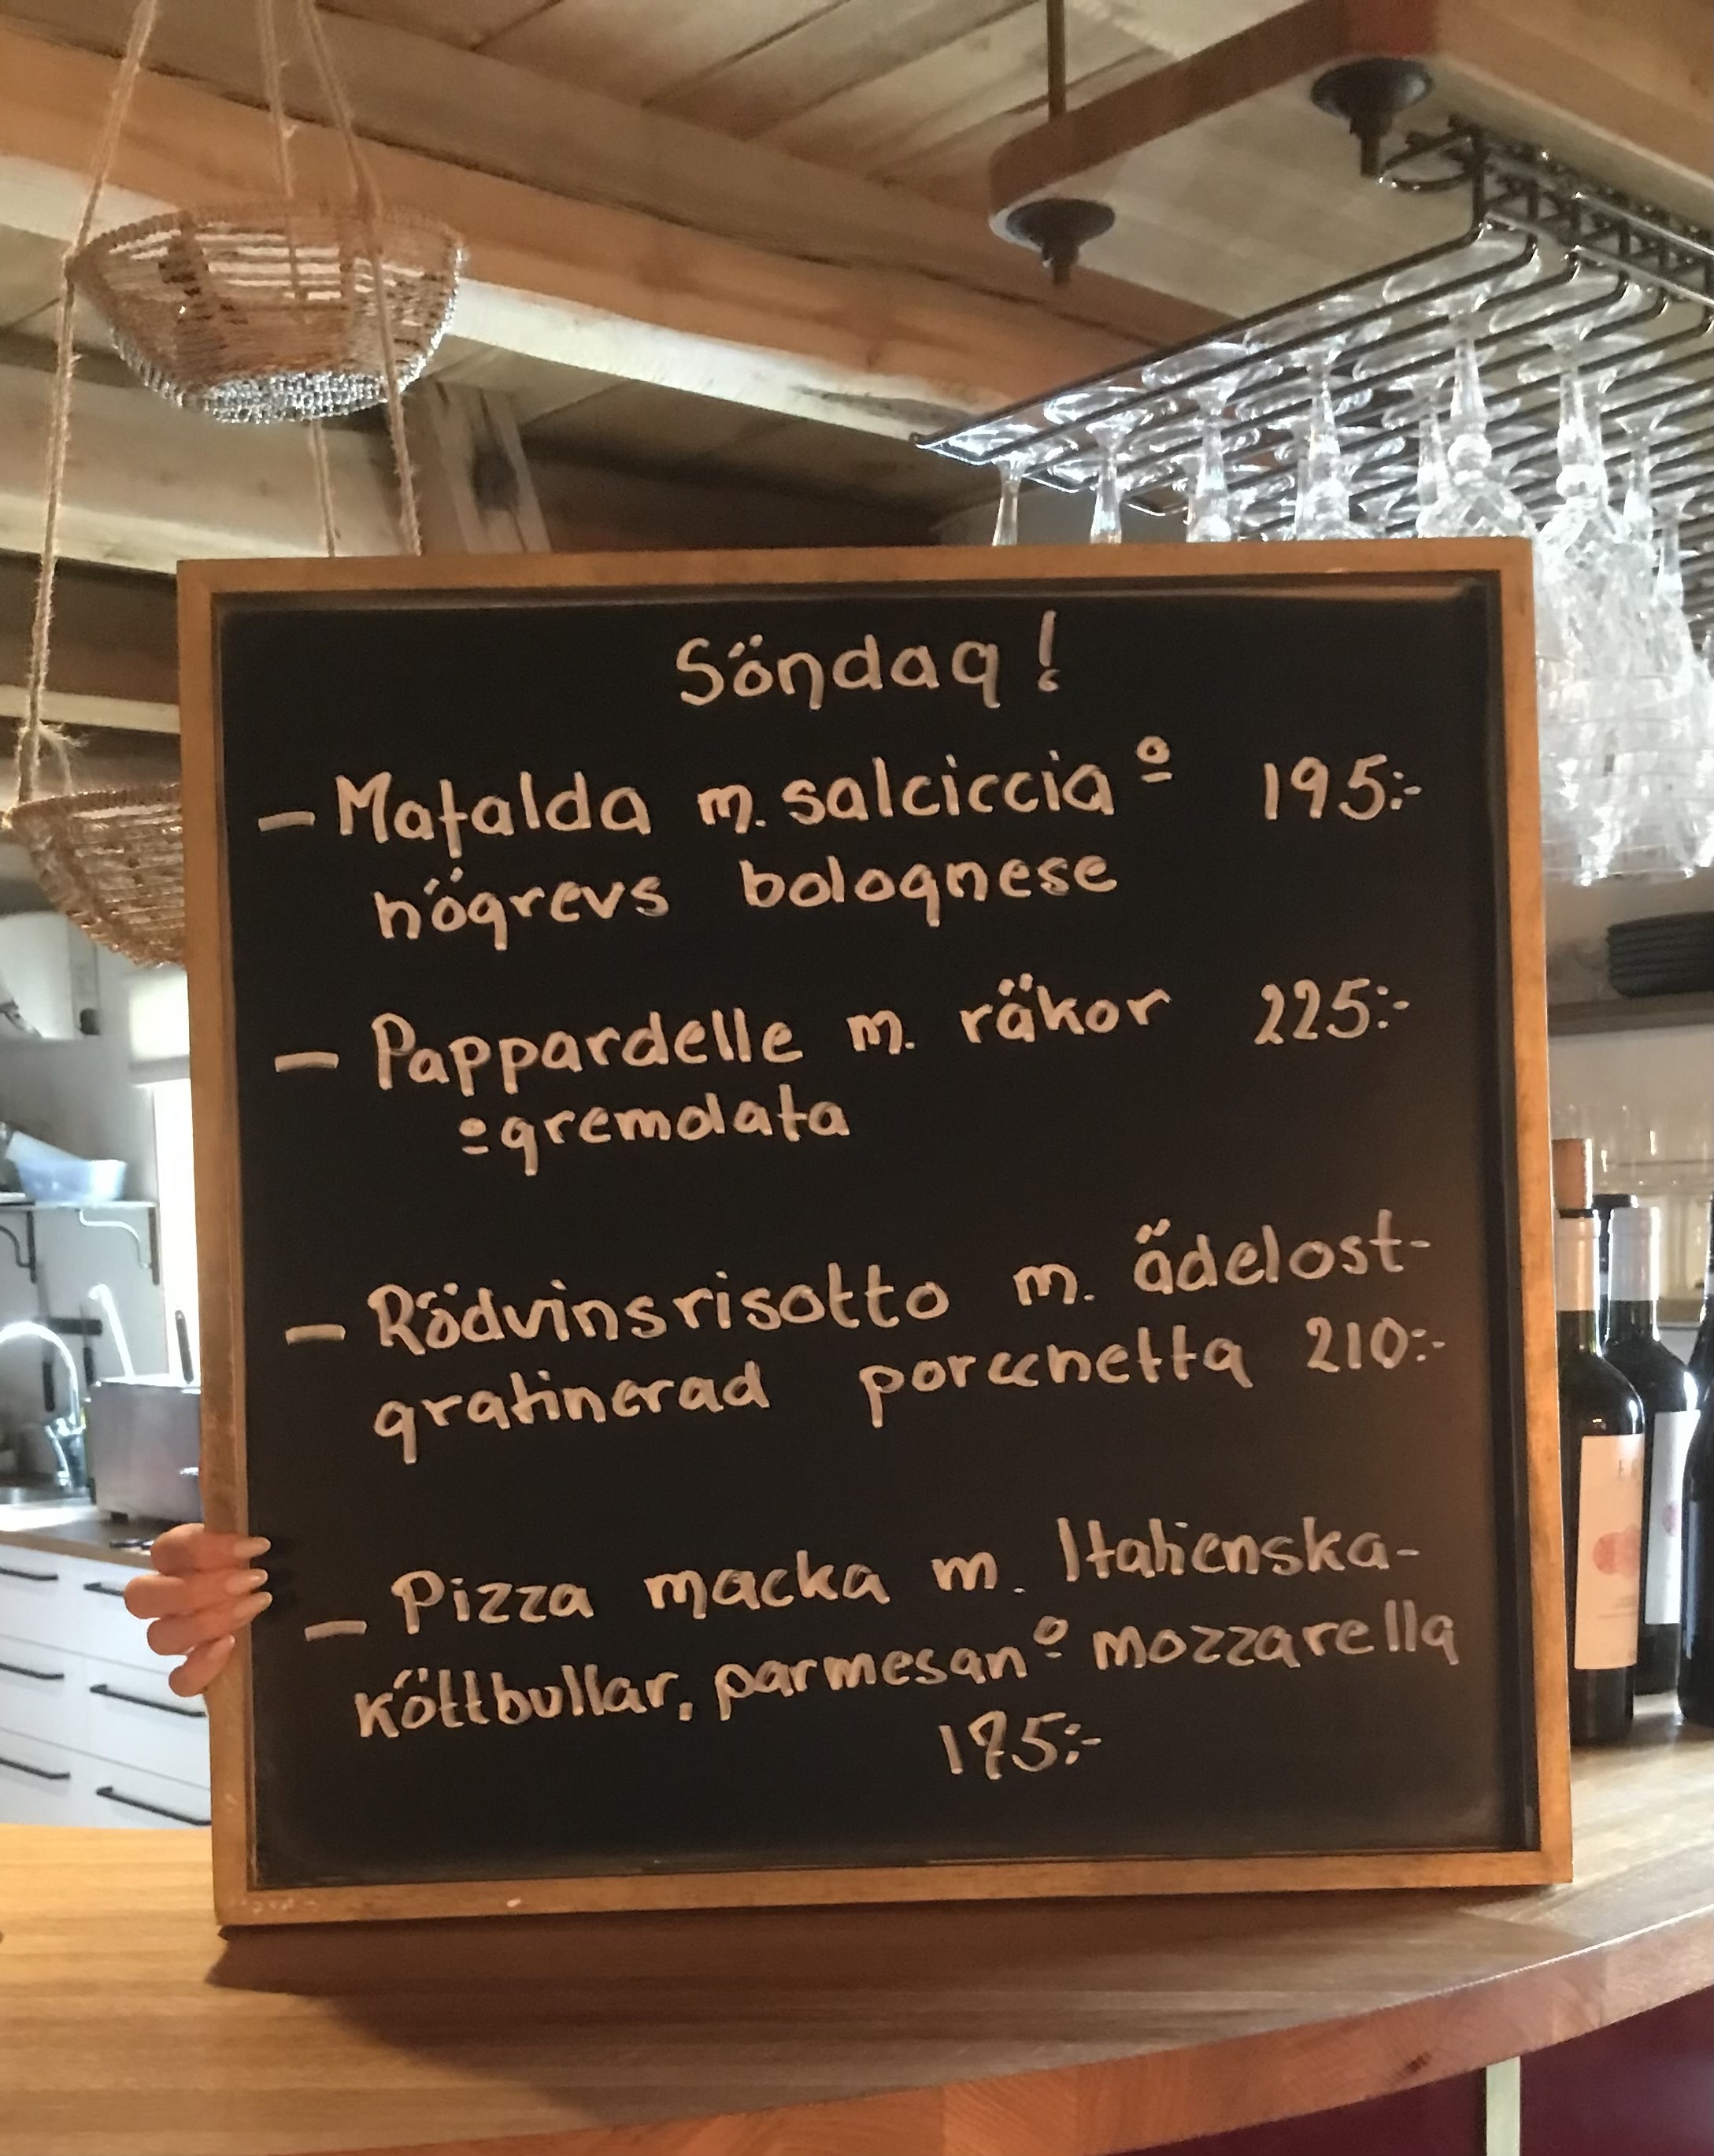 Söndag!
- Mafalda m. salciccia o 195:-
högrevs bolognese
- Pappardelle m. räkor 225:-
o gremolata
- Rödvinsrisotto m. ädelost-
gratinerad porcchetta 210:-
- Pizza macka m. Italienska-
köttbullar, parmesan o mozzarella
175:-